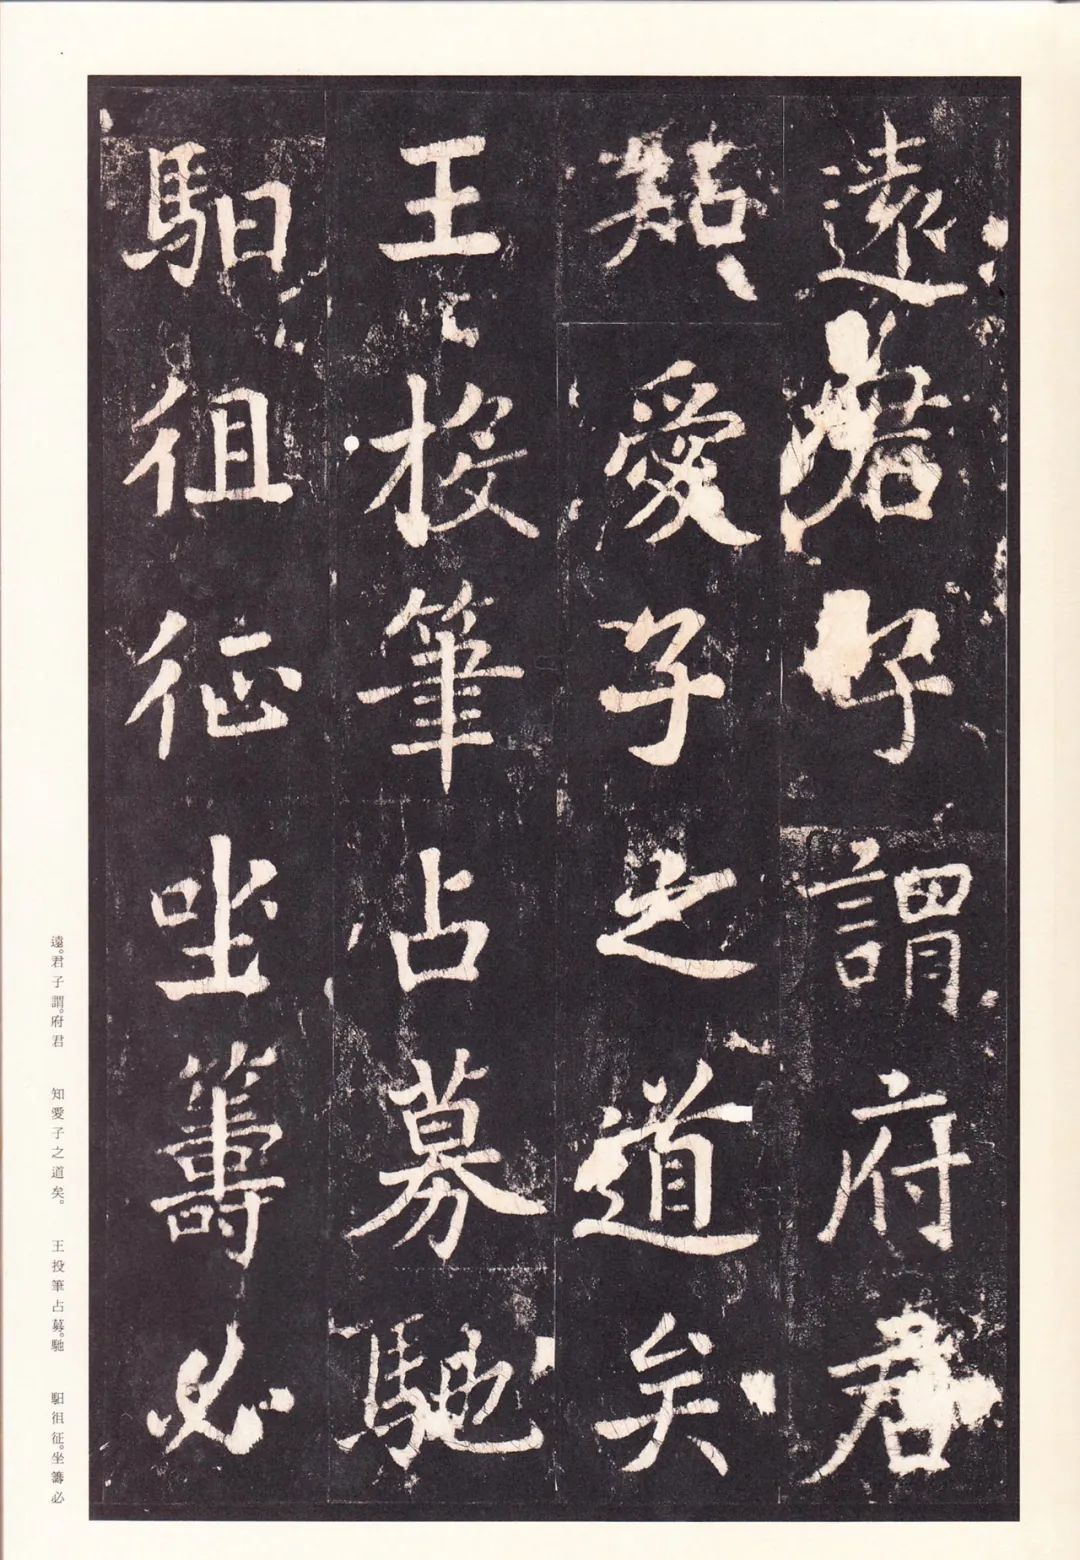 遠君子謂府君
知愛子之道矣
王投筆占募馳
駔徂征坐籌必
遠。君子謂。府君　知愛子之道矣。　王投筆占募。馳　駔徂征。坐籌必